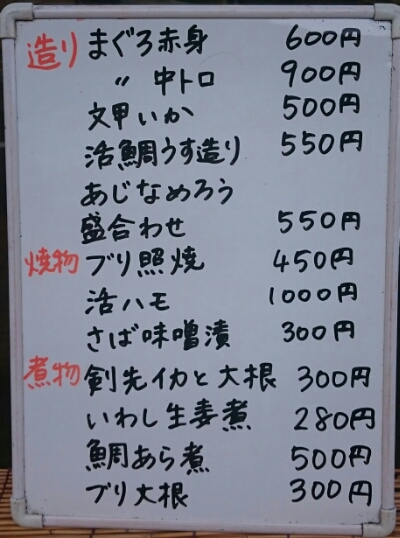 造り まぐろ赤身 600円
〃 中トロ 900円
文甲いか 500円
活鯛うす造り 550円
あじなめろう
盛合わせ 550円
焼物 ブリ照焼 450円
活ハモ 1000円
さば味噌漬 300円
煮物 剣先イカと大根 300円
いわし生姜煮 280円
鯛あら煮 500円
ブリ大根 300円